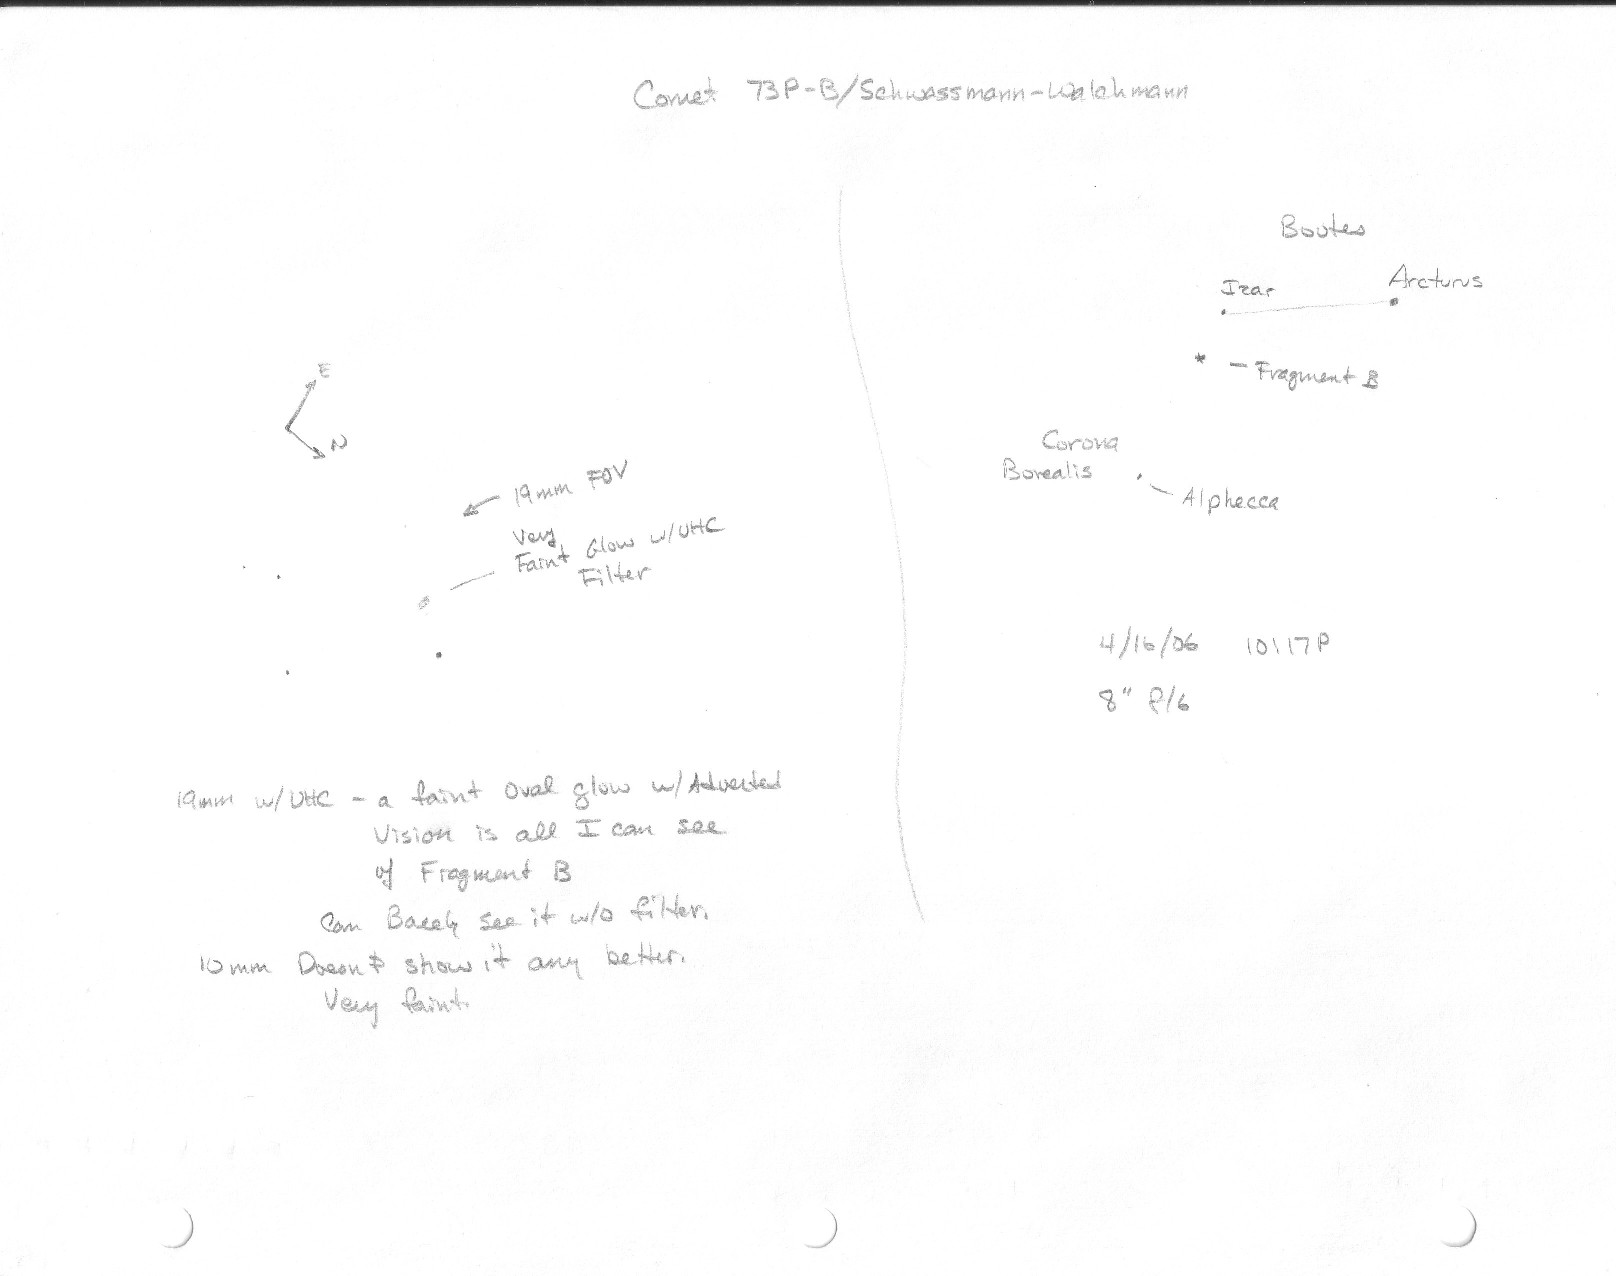 Comet 73P-B/Schwassmann-Walchmann
E
N
19mm FOV
Very
Faint Glow w/UHC
Filter
19mm w/UHC - a faint oval glow w/Adverted
Vision is all I can see
of Fragment B
Can Barely see it w/o filter.
10mm Doesn't show it any better.
Very faint.
Bootes
Izar
Arcturus
- Fragment B
Corona
Borealis
Alphecca
4/16/06 10:17P
8" f/6